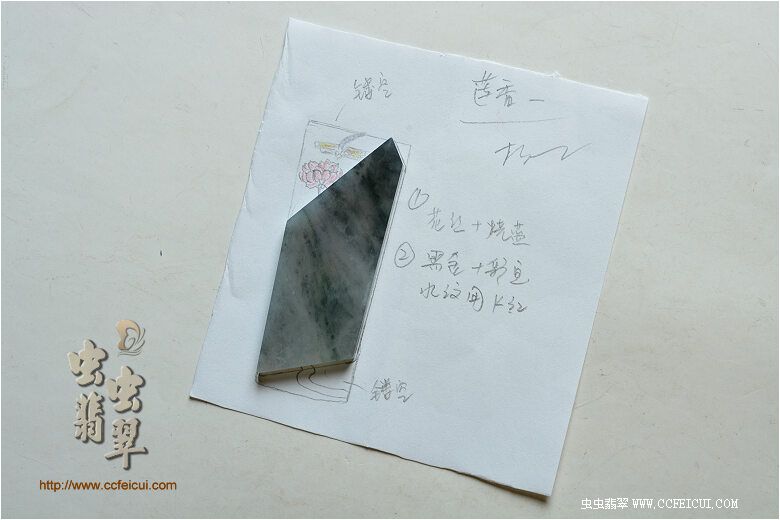 镂空
芭蕾一
①
花丝+烧蓝
②
黑金+彩宝
水纹用K红
镂空
虫虫翡翠
http://www.ccfeicui.com
虫虫翡翠 WWW.CCFEICUI.COM